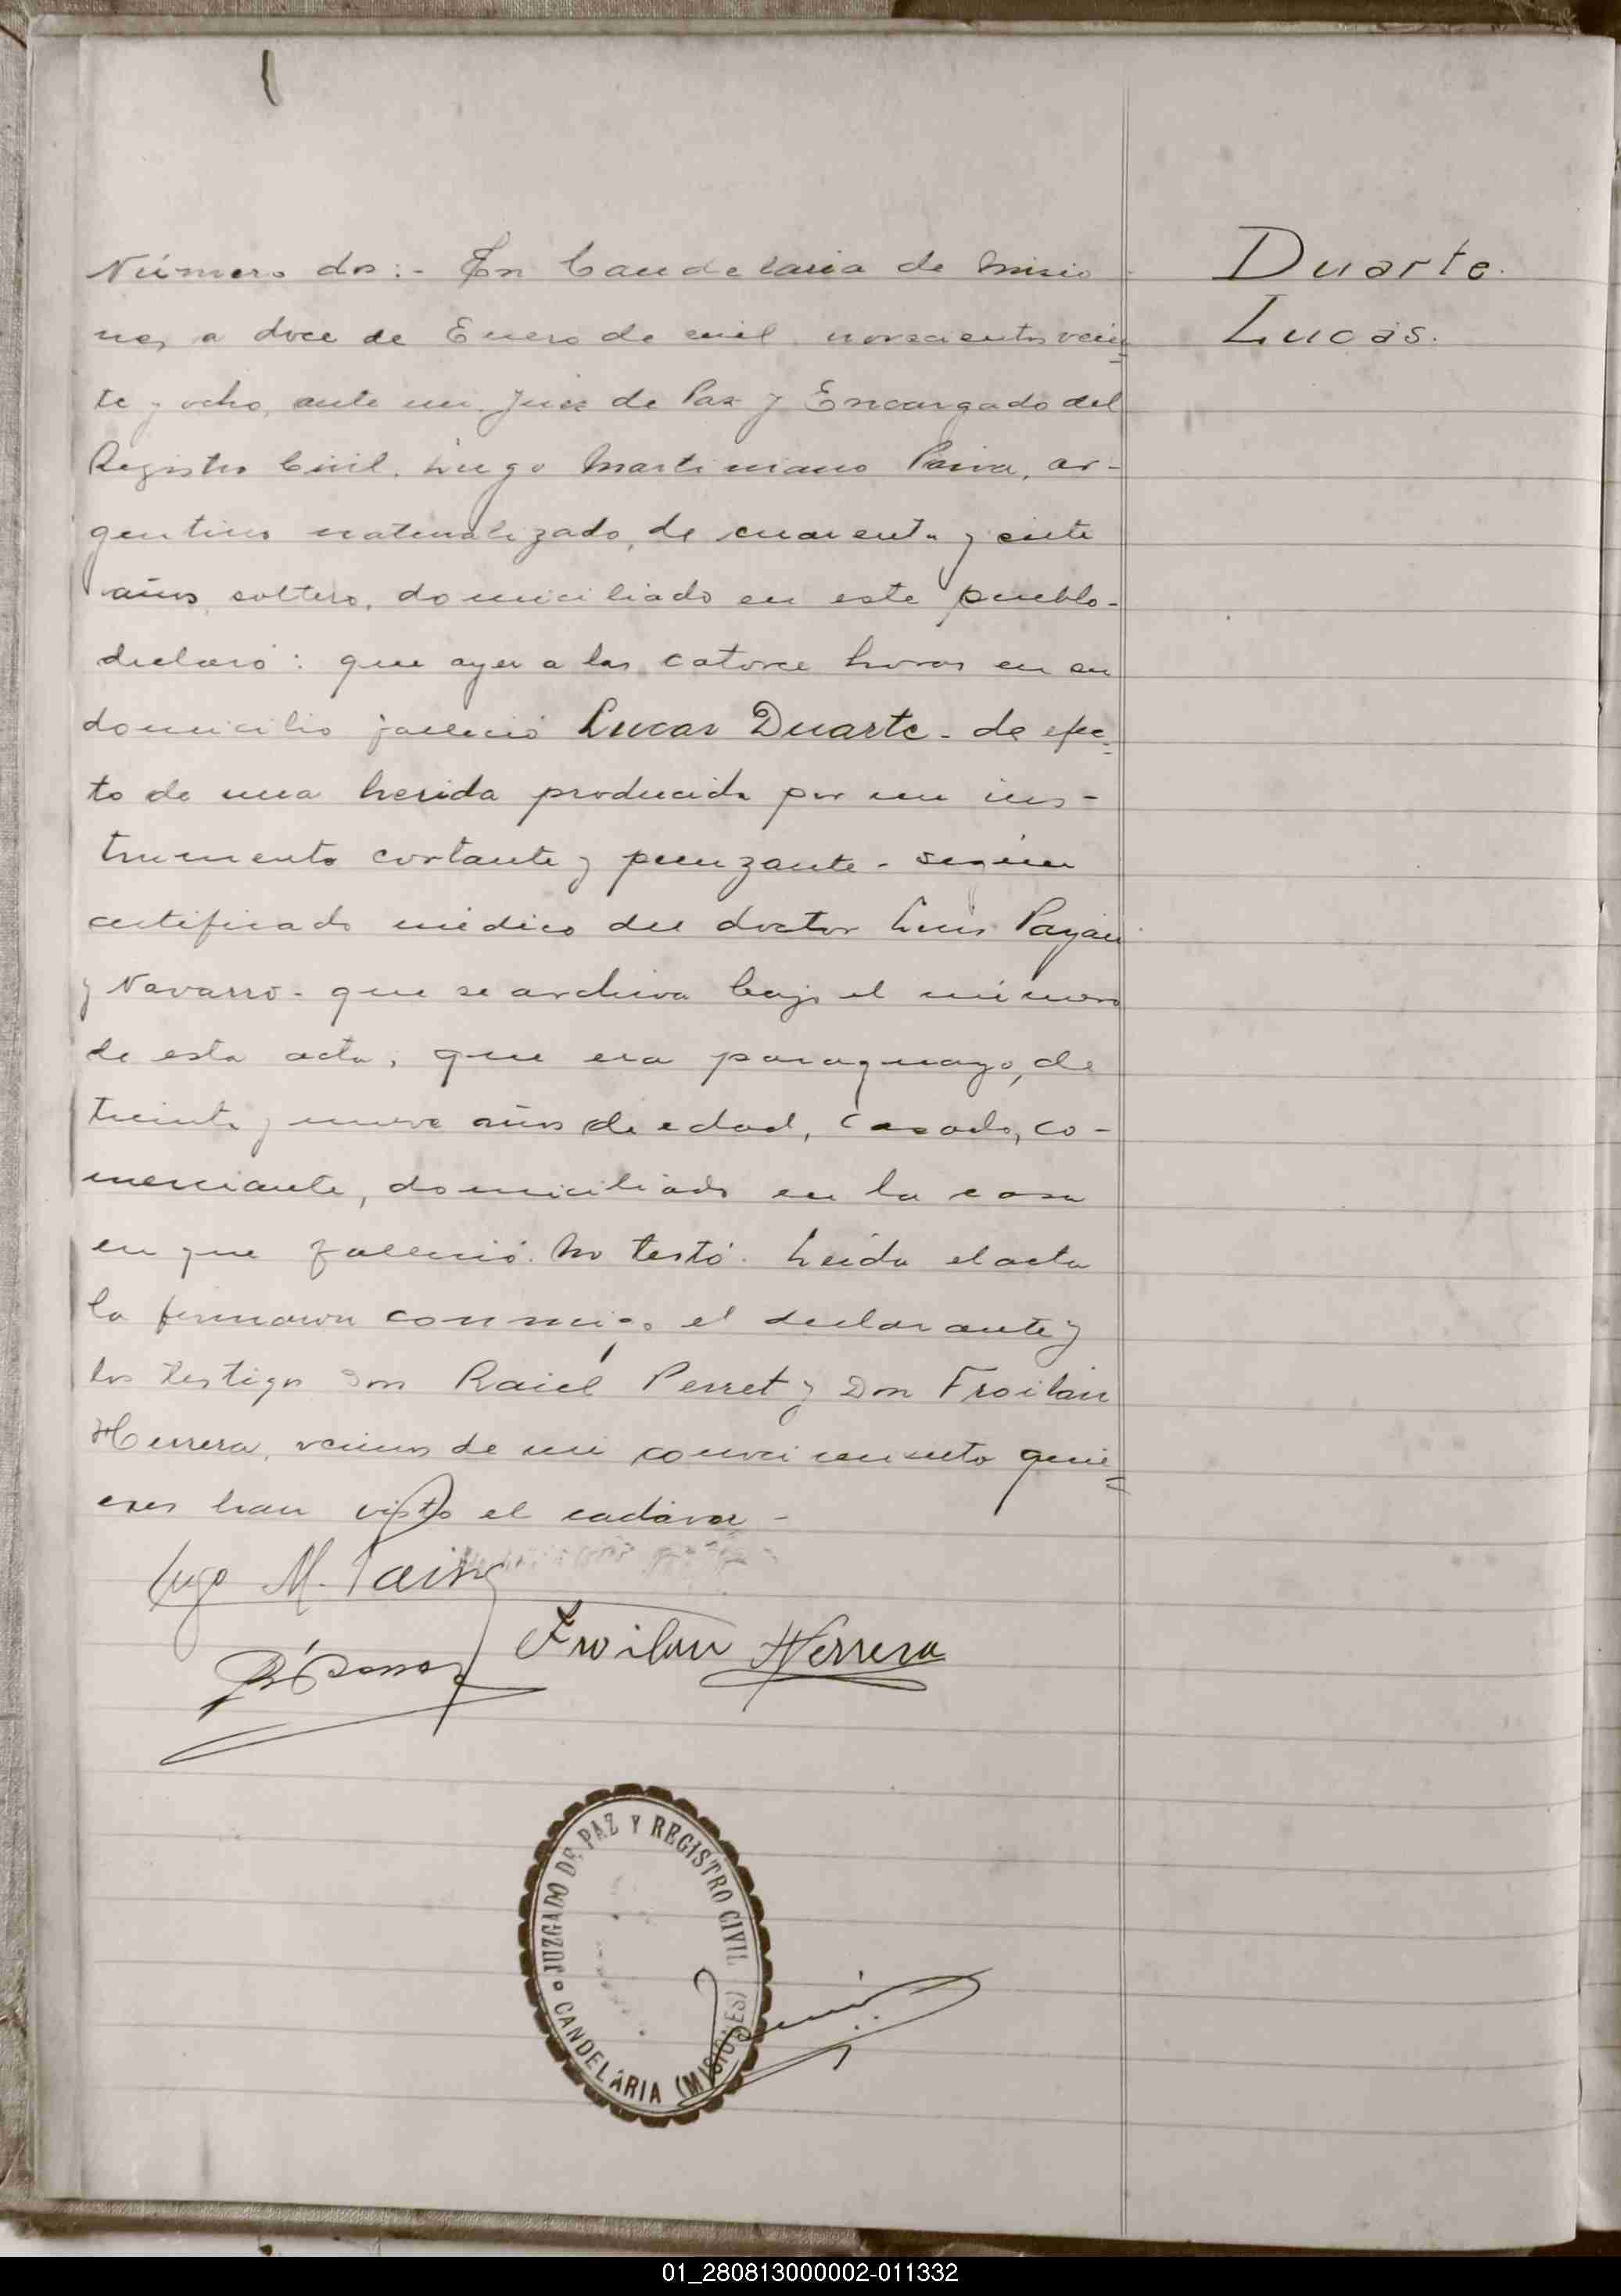 Número dos:- En Candelaria de Misio
nes, a doce de Enero de mil novecientos vein=
te y ocho, ante mi Juez de Paz y Encargado del
Registro Civil, Lugo Martiniano Paiva, ar-
gentino naturalizado, de cuarenta y siete
años, soltero, domiciliado en este pueblo-
declaró: que ayer a las catorce horas en su
domicilio falleció Lucas Duarte- de efec=
to de una herida producida por un ins-
trumento cortante y punzante- según
certificado médico del doctor Luis Payán
y Navarro- que se archiva bajo el número
de esta acta, que era paraguayo, de
treinta y nueve años de edad, casado, co-
merciante, domiciliado en la casa
en que falleció. No testó. Leída el acta
la firmaron conmigo el declarante y
los testigos Don Raúl Perret y Don Froilán
Herrera, vecinos de mi conocimiento quie=
nes han visto el cadáver-
Lugo M. Paiva
Froilan Herrera
Duarte.
Lucas.
JUZGADO DE PAZ Y REGISTRO CIVIL
CANDELARIA (MISIONES)
01_280813000002-011332